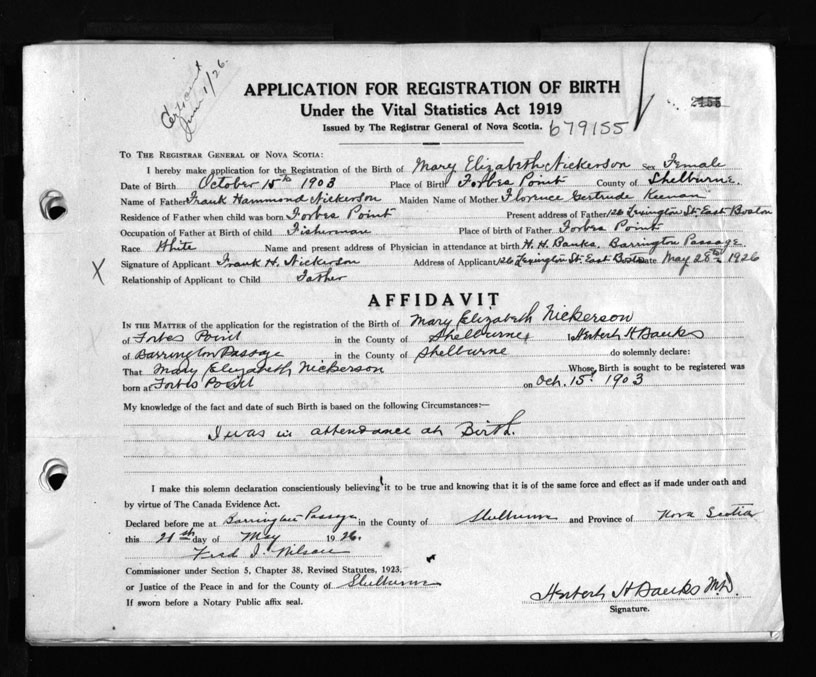 June 1/26.
APPLICATION FOR REGISTRATION OF BIRTH
Under the Vital Statistics Act 1919
Issued by The Registrar General of Nova Scotia. 679155
TO THE REGISTRAR GENERAL OF NOVA SCOTIA:
I hereby make application for the Registration of the Birth of Mary Elizabeth Nickerson Sex Female
Date of Birth October 15th 1903 Place of Birth Forbes Point County of Shelburne.
Name of Father Frank Hammond Nickerson Maiden Name of Mother Florence Gertrude Keenan
Residence of Father when child was born Forbes Point Present address of Father 126 Lexington St. East Boston
Occupation of Father at Birth of child Fisherman Place of birth of Father Forbes Point
Race White Name and present address of Physician in attendance at birth H. H. Banks, Barrington Passage.
X Signature of Applicant Frank H. Nickerson Address of Applicant 126 Lexington St. East Boston Date May 28th 1926
Relationship of Applicant to Child Father
AFFIDAVIT
IN THE MATTER of the application for the registration of the Birth of Mary Elizabeth Nickerson
of Forbes Point in the County of Shelburne I, Herbert H Banks
of Barrington Passage in the County of Shelburne do solemnly declare:
That Mary Elizabeth Nickerson Whose Birth is sought to be registered was
born at Forbes Point on Oct. 15th 1903
My knowledge of the fact and date of such Birth is based on the following Circumstances:—
I was in attendance at Birth.
I make this solemn declaration conscientiously believing it to be true and knowing that it is of the same force and effect as if made under oath and
by virtue of The Canada Evidence Act.
Declared before me at Barrington Passage in the County of Shelburne and Province of Nova Scotia
this day of May 1926.
Fred I. Wilson
Commissioner under Section 5, Chapter 38, Revised Statutes, 1923.
or Justice of the Peace in and for the County of Shelburne
If sworn before a Notary Public affix seal.
Herbert H Banks M.D.
Signature.